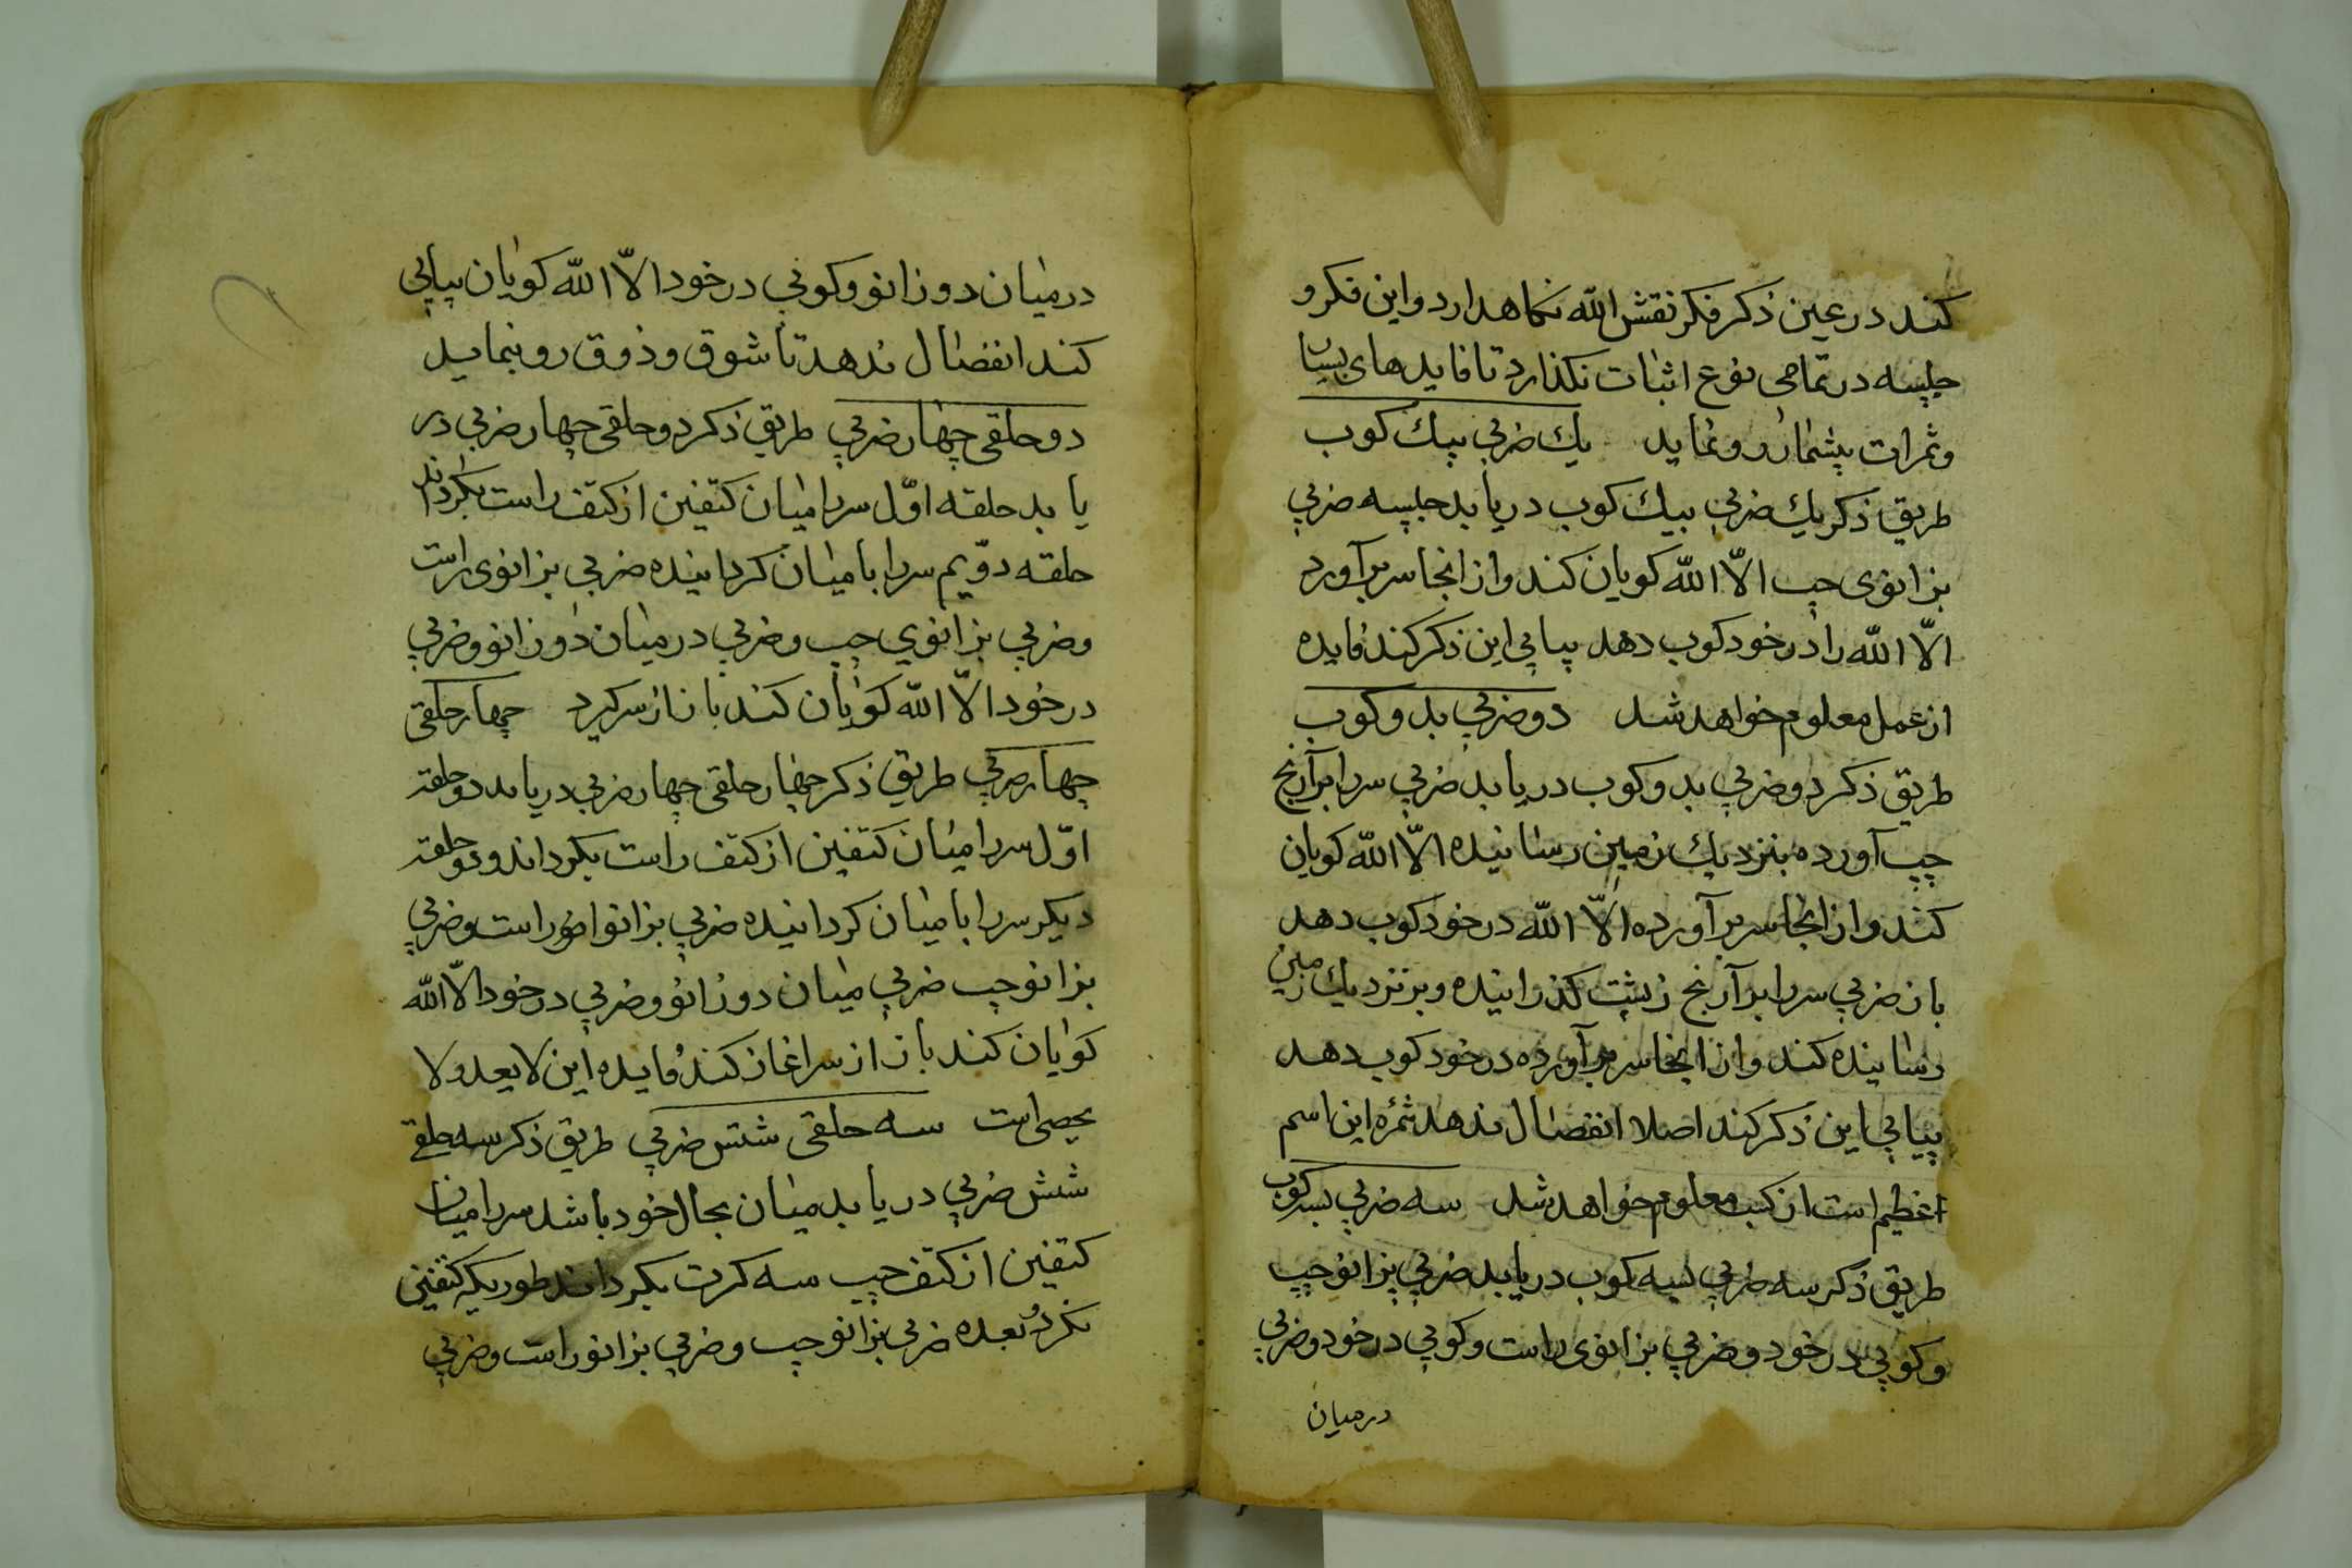 کند در عین ذکر فکر نقش الله نکاهدارد و این فکر و
جلسه در تمامی نوع اثبات نکذارد تا فایدهای بسیار
و ثمرات بیشمار رو و نماید یك ضربي بیك کوب
طریق ذکر یك ضربي بیك کوب در یابد جلسه ضربي
بزانوی چپ الّا الله کویان کند و از انجا سر برآورد
الّا الله را در خود کوب دهد پیاپي این ذکر کند فایده
از عمل معلوم خواهد شد دو ضربي بد و کوب
طریق ذکر دو ضربي بد و کوب در یابد ضربي سر را بر آرنج
چپ آورده بنزدیك زمین رسانیده الّا الله کویان
کند و از انجا سر بر آورده الّا الله در خود کوب دهد
باز ضربي سر را بر آرنج کذرانیده و بر نزدیك زمین
رسانیده کند و از انجا سر بر آورده در خود کوب دهد
پیاپي این ذکر کند اصلا انفصال ندهد ثمره این اسم
اعظیم است از کسب معلوم خواهد شد سه ضربي بسه کوب
طریق ذکر سه ضربي بسه کوب در یابد ضربي بزانو چپ
و کوبي در خود و ضربي بزانوی راست و کوبي در خود و ضربي
درمیان
درمیان دو زانو و کوبي در خود الّا الله کویان پیاپي
کند انفصال ندهد تا شوق و ذوق رو بنماید
دو حلقی چهار ضربي طریق ذکر دو حلقی چهار ضربي در
یابد حلقه اوّل سر را میان کتفین از کتف راست بکرداند
حلقه دوّیم سر را با میان کردانیده ضربي بزانوی راست
و ضربي بزانوي چپ و ضربي درمیان دو زانو و ضربي
در خود الّا الله کویان کند باز از سر کیرد چهار حلقی
چهار ضربي طریق ذکر چهار حلقی چهار ضربي در یابد دو حلقه
اوّل سر را میان کتفین از کتف راست بکرداند و دو حلقه
دیکر سر را با میان کردانیده ضربي بزانو راست و ضربي
بزانو چپ ضربي میان دو زانو و ضربي در خود الّا الله
کویان کند باز از سر اغاز کند فایده این لا یعد و لا
یحصی است سه حلقی شش ضربي طریق ذکر سه حلقے
شش ضربي در یابد میان بحال خود باشد سر را میان
کتفین از کتف چپ سه کرت بکرداند طوریکه کتفین
نکردد بعده ضربي بزانو چپ و ضربي بزانو راست و ضربي